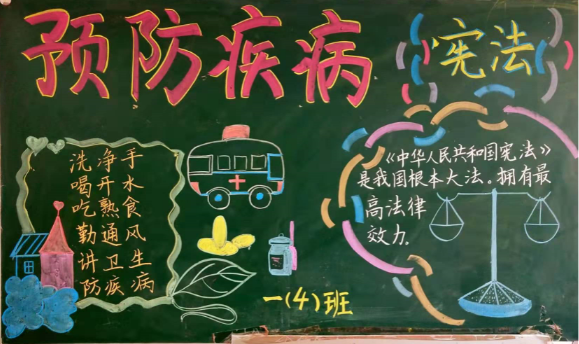 预防疾病
宪法
洗净手
喝开水
吃熟食
勤通风
讲卫生
防疾病
《中华人民共和国宪法》
是我国根本大法。拥有最
高法律
效力.
一(4)班